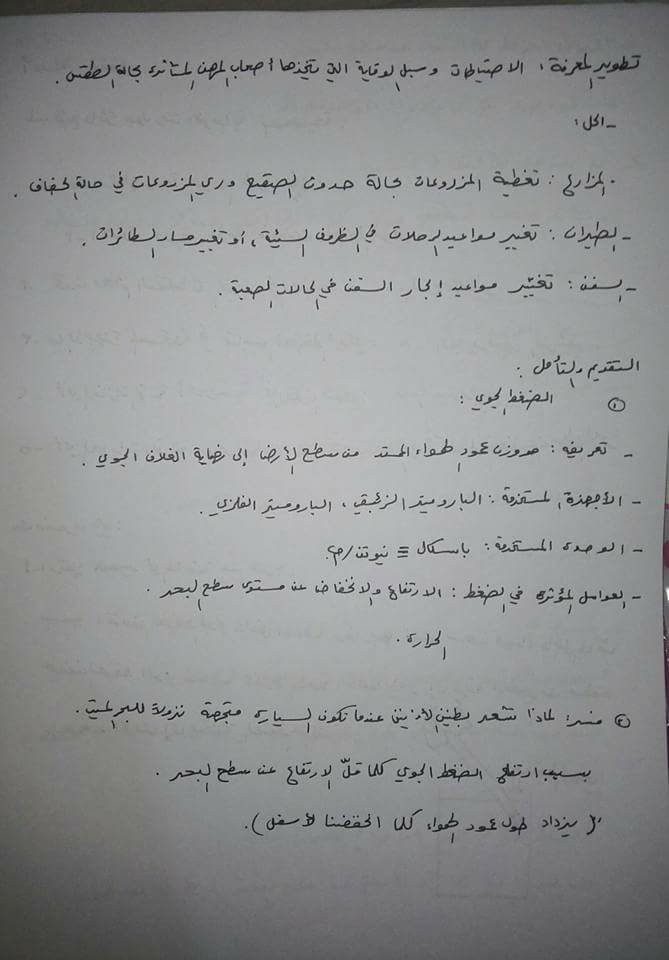 تطوير المعرفة: الاحتياطات وسبل الوقاية التي يتخذها أصحاب المهن المتأثرة بحالة الطقس.
- الحل:
. المزارع: تغطية المزروعات بحالة حدوث الصقيع وري المزروعات في حالة الجفاف.
- الطيران: تغيير مواعيد الرحلات في الظروف السيئة، أو تغيير مسار الطائرات.
- السفن: تغيير مواعيد إبحار السفن في الحالات الصعبة.
التقديم والتأمل:
① الضغط الجوي:
- تعريفه: هو وزن عمود الهواء الممتد من سطح الأرض إلى نهاية الغلاف الجوي.
- الأجهزة المستخدمة: الباروميتر الزئبقي، الباروميتر الفلزي.
- الوحدة المستخدمة: باسكال ≡ نيوتن/م².
- العوامل المؤثرة في الضغط: الارتفاع والانخفاض عن مستوى سطح البحر.
الحرارة.
② فسر: لماذا تشعر بطنين الأذنين عندما تكون السيارة متجهة نزولا للبحر الميت.
بسبب ارتفاع الضغط الجوي كلما قلّ الارتفاع عن سطح البحر.
(يزداد طول عمود الهواء كلما انخفضنا لأسفل).